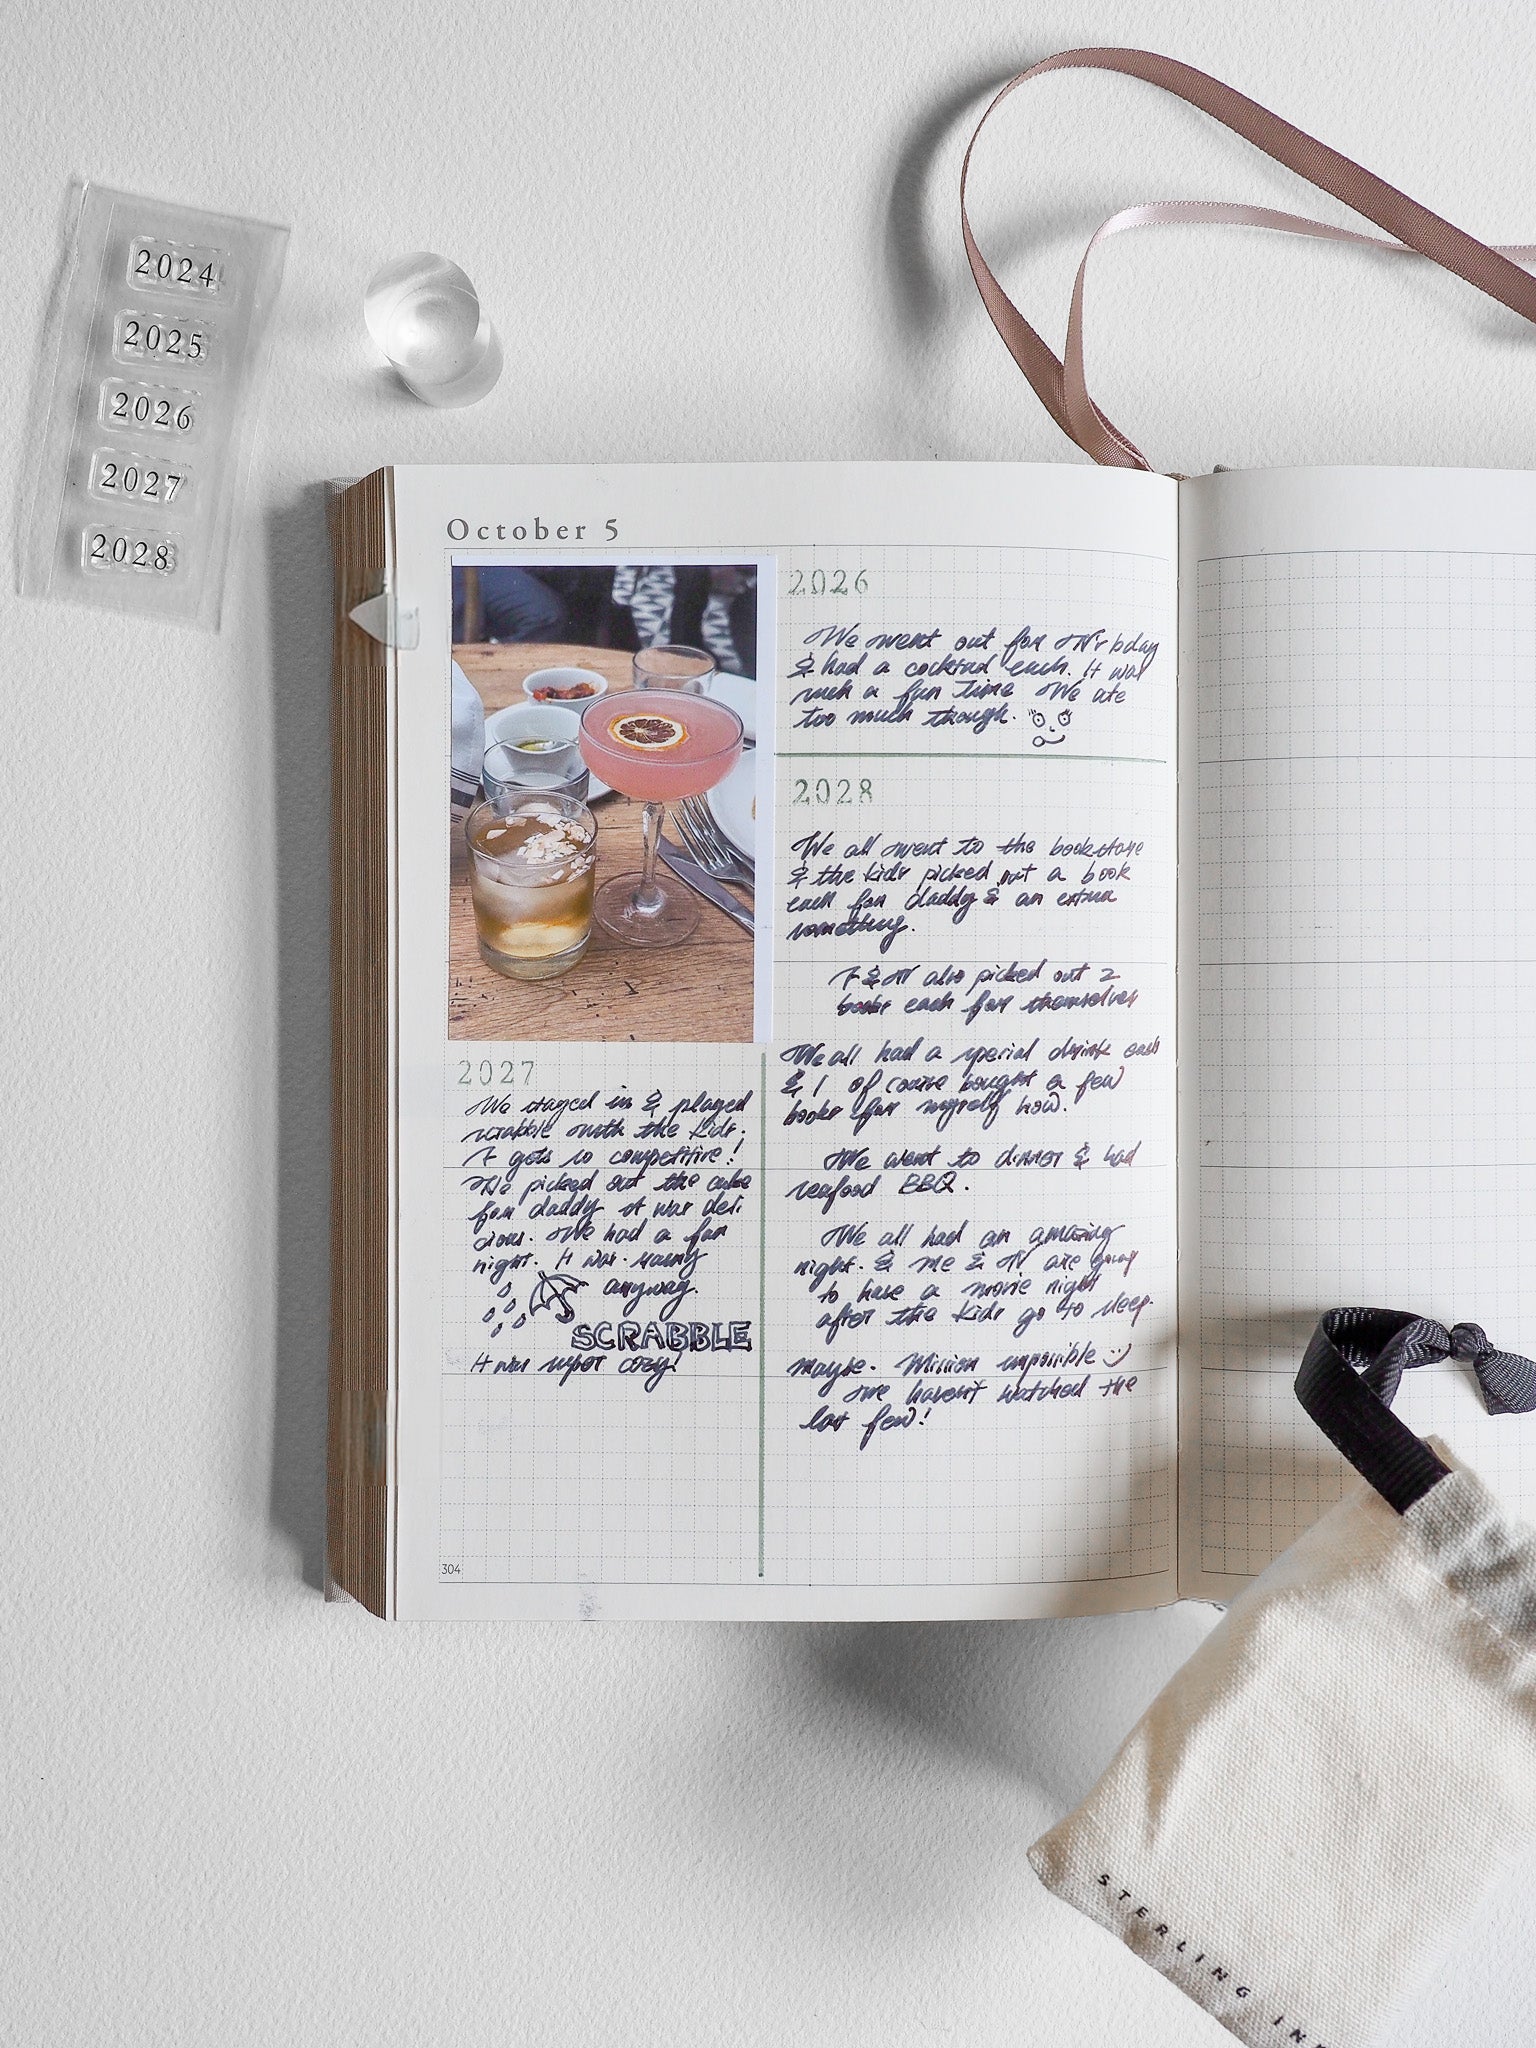 2024
2025
2026
2027
2028
October 5
2026
We went out for
& had a cocktail each. It was
such a fun time We ate
too much though.
2028
We all went to the bookstore
& the kids picked out a book
each for daddy & an extra
something.
& also picked out 2
books each for themselves
We all had a special drink each
& I of course bought a few
books for myself
We went to dinner & had
seafood BBQ.
We all had an amazing
night. & me & are going
to have a movie night
after the kids go to sleep.
maybe. Mission impossible :)
we haven't watched the
last few!
2027
We stayed in & played
scrabble with the kids.
gets so competitive!
We picked out the cake
for daddy it was deli
cious. We had a fun
night. It was rainy
anyway.
SCRABBLE
It was super cozy!
304
STERLING INK